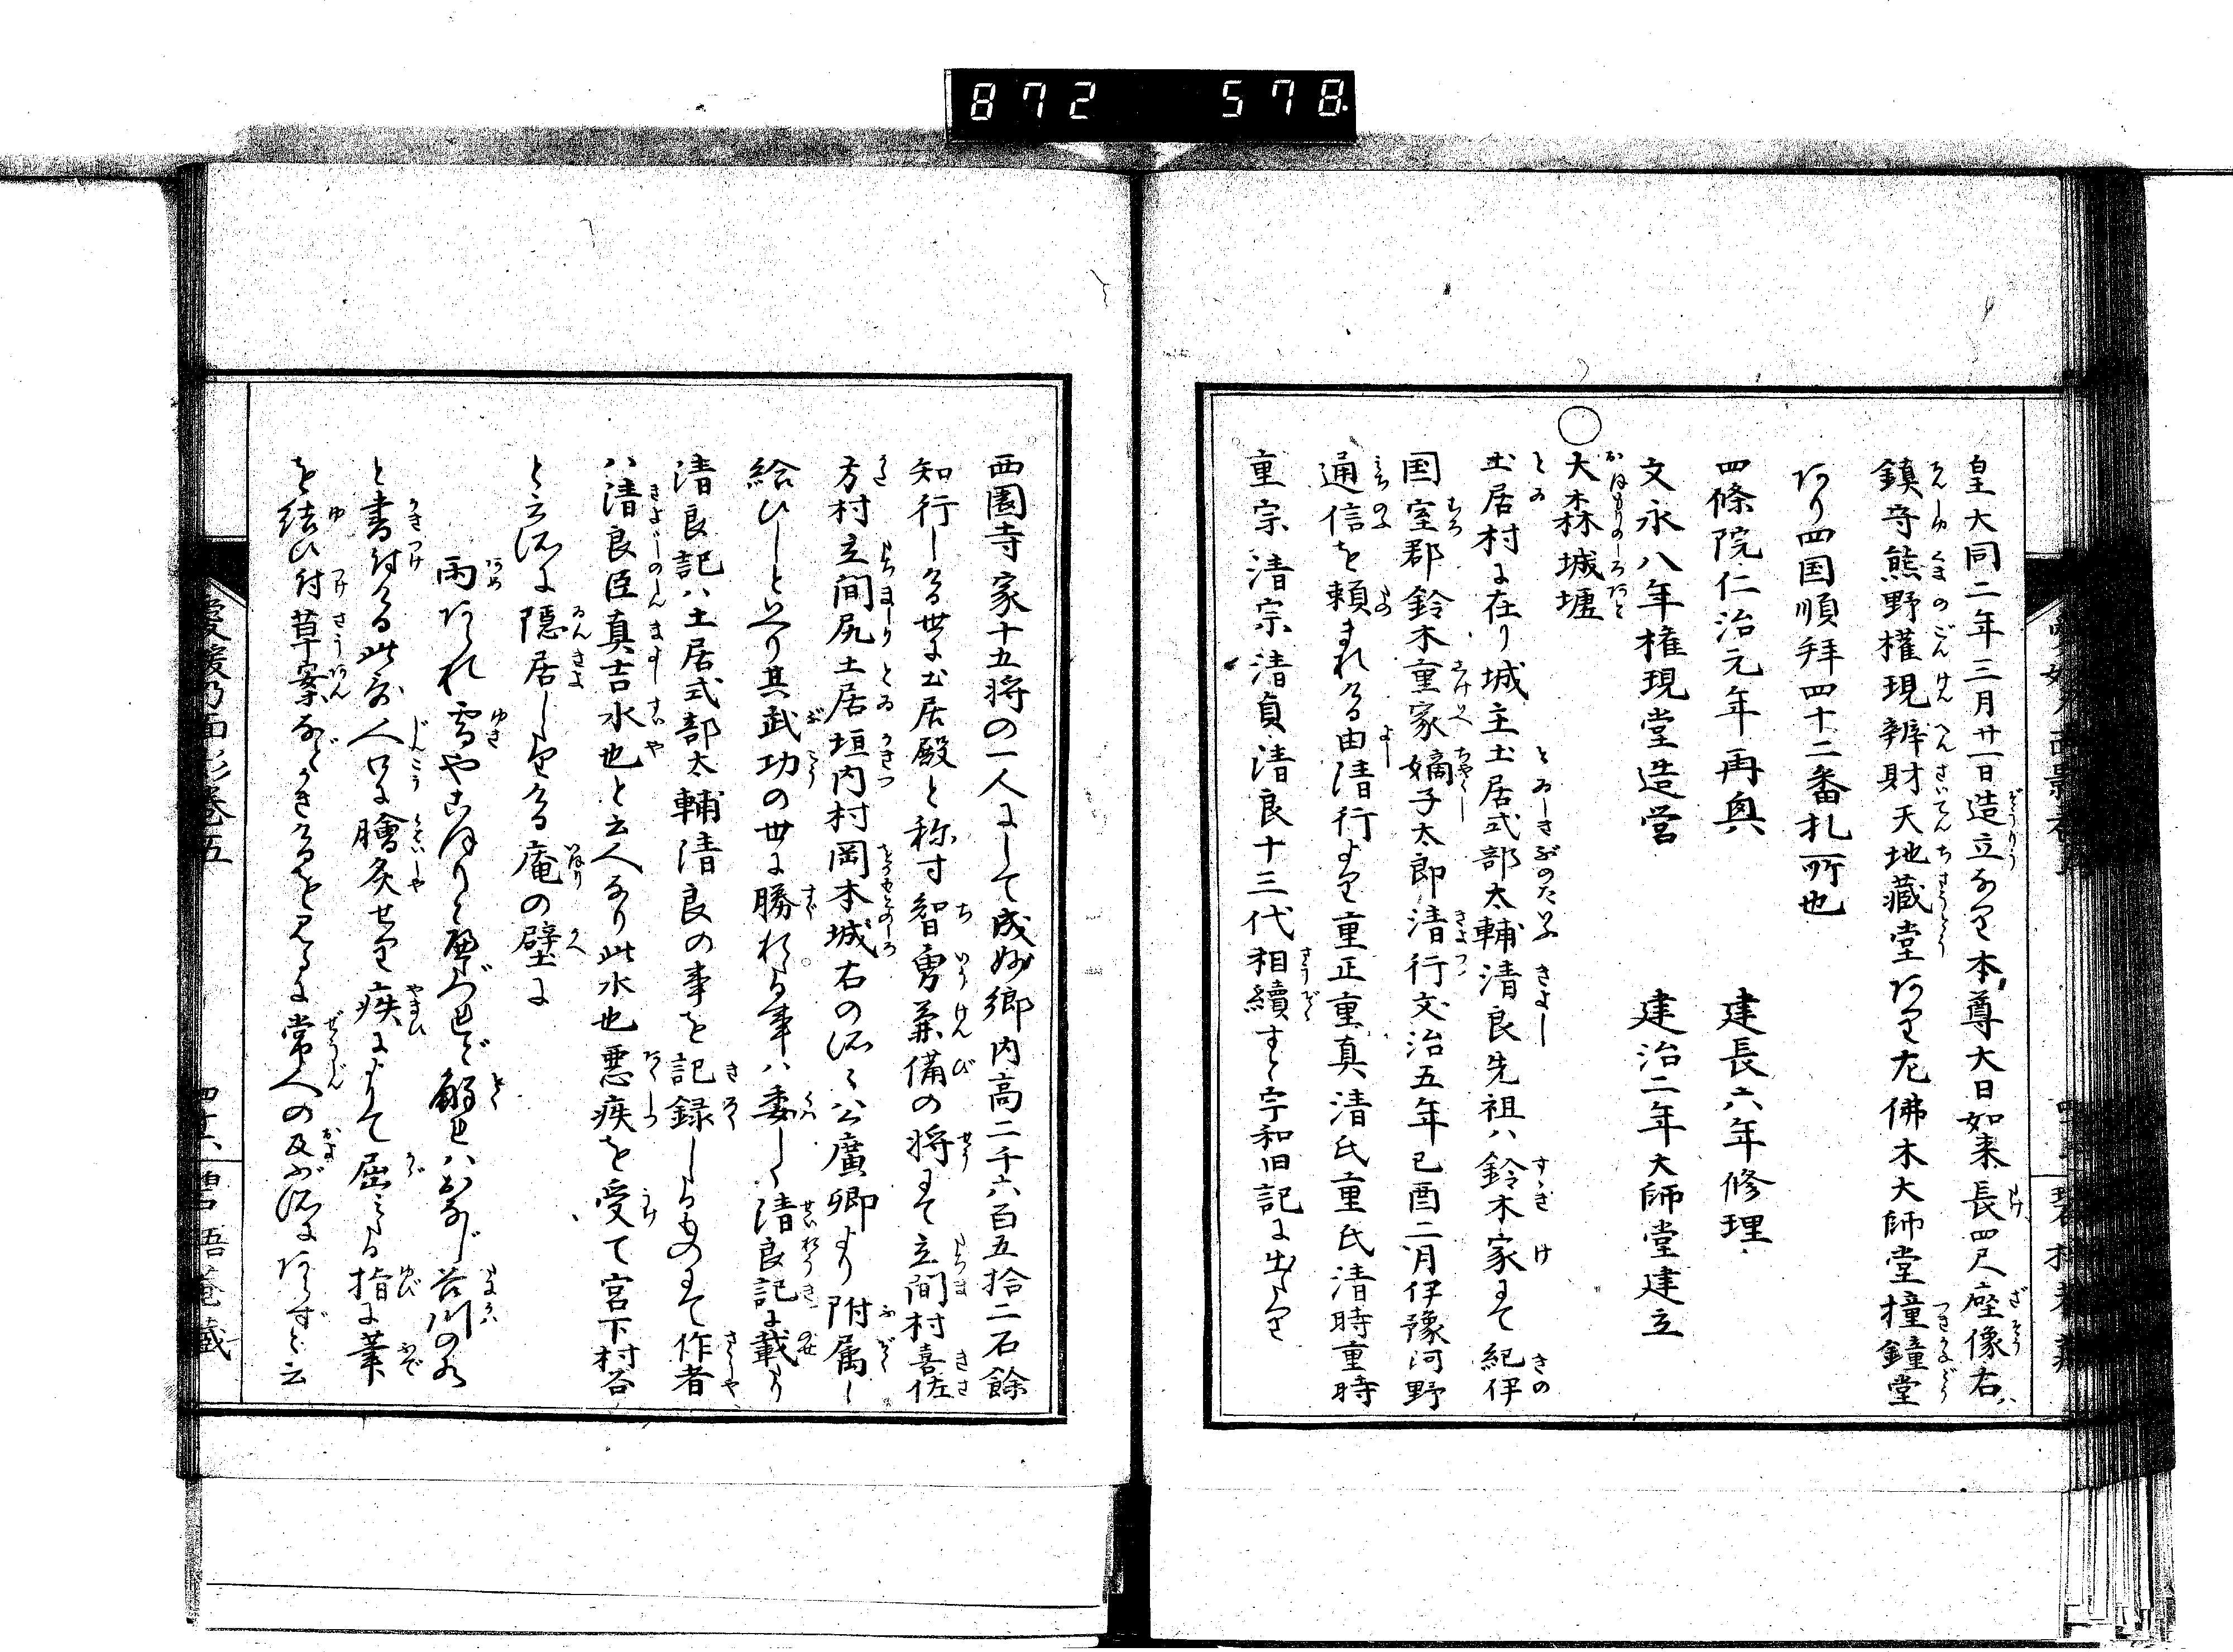 872 578
皇大同二年三月廿一日造立なり本尊大日如来長四尺座像右ハ
鎮守熊野權現辨財天地蔵堂あり左佛木大師堂撞鐘堂
あり四国順拜四十二番札所也
四條院仁治元年再興 建長六年修理
文永八年権現堂造営 建治二年大師堂建立
○大森城墟
土居村に在り城主土居式部太輔清良先祖ハ鈴木家にて紀伊
国室郡鈴木重家嫡子太郎清行文治五年己酉二月伊豫河野
通信を頼まれける由清行より重正重真清氏重氏清時重時
重宗清宗清貞清良十三代相續すと宇和旧記に出たり
西園寺家十五将の一人にして成妙郷内高二千六百五拾二石餘
知行しける世に土居殿と称す智勇兼備の将にて立間村喜佐
方村立間尻土居垣内村岡本城右の所々公廣卿より附属し
給ひしと之り其武功の世に勝れたる事ハ委しく清良記に載たり
清良記ハ土居式部太輔清良の事を記録したるものにて作者
ハ清良臣真吉水也と云人なり此水也悪疾を受て宮下村谷
と云所に隠居したりける庵の壁に
雨あられ雪やこほりとへだつれど解れハおなじ谷川の水
と書付ける此哥人口に膾炙せり疾によりて屈みたる指に筆
を結ひ付草案などかきけるを見るに常人の及ぶ所にあらずと云
愛媛乃面影巻五